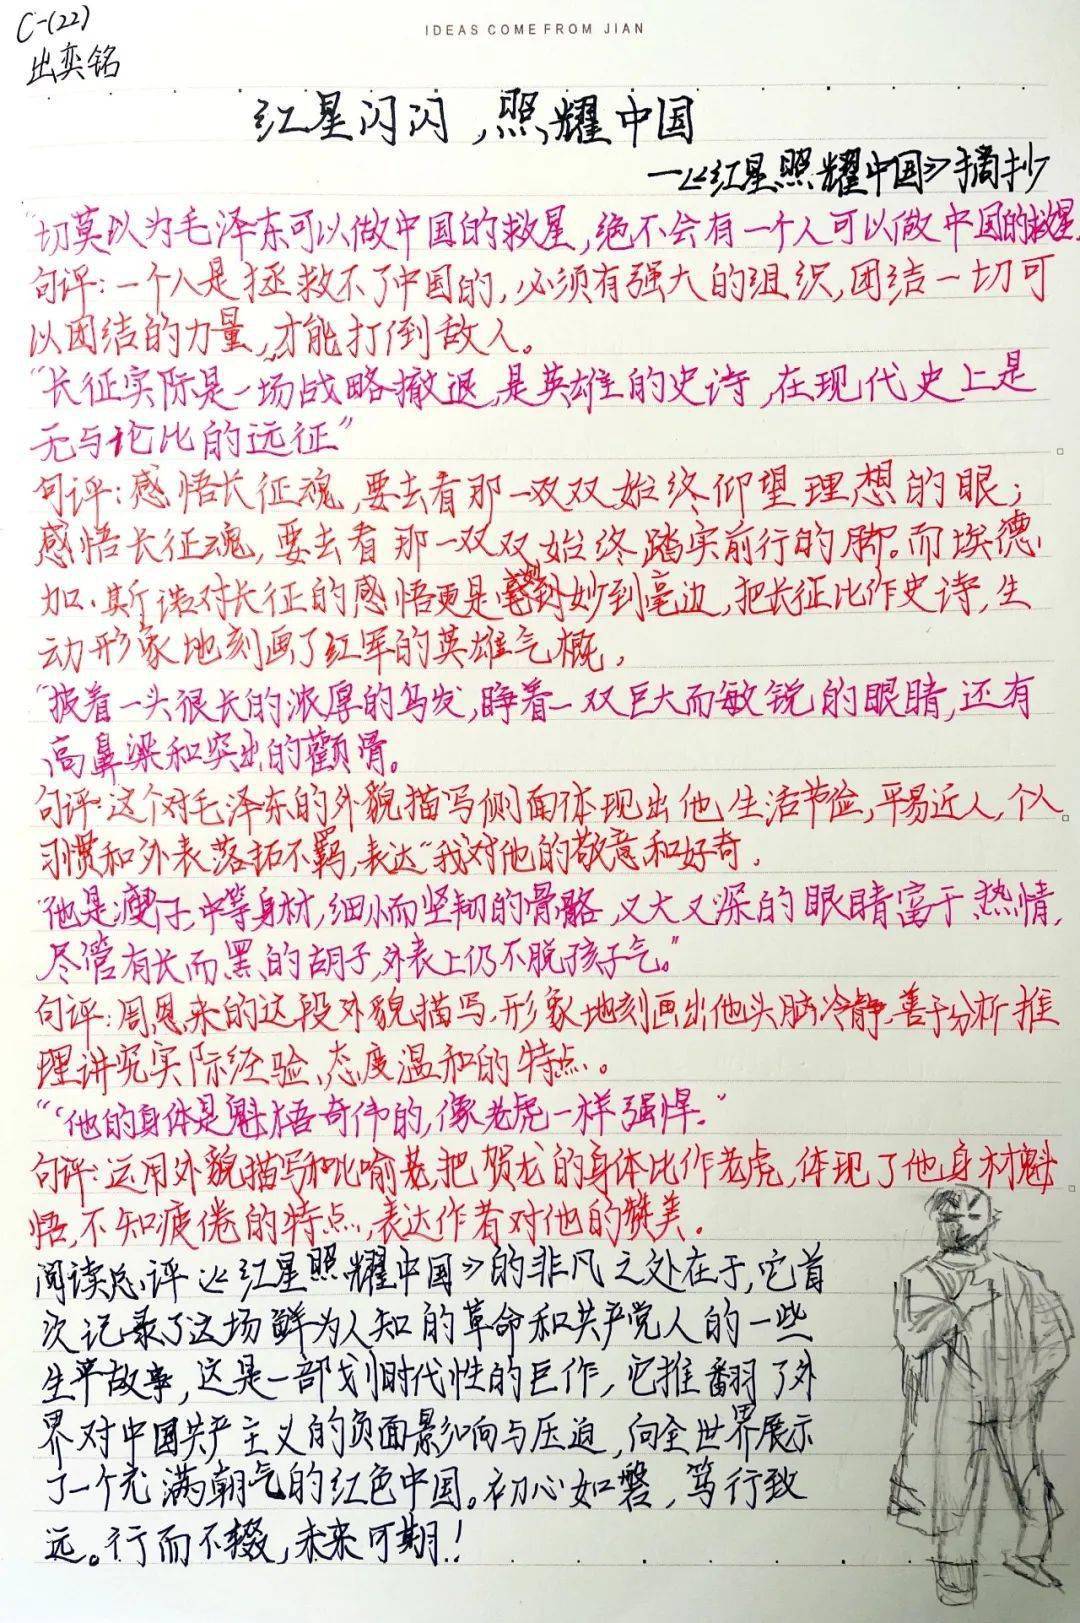 C-(22)
出奕铭
IDEAS COME FROM JIAN
红星闪闪,照耀中国
—《红星照耀中国》摘抄
"切莫以为毛泽东可以做中国的救星,绝不会有一个人可以做中国的救星
句评:一个人是拯救不了中国的,必须有强大的组织,团结一切可
以团结的力量,才能打倒敌人。
"长征实际是一场战略撤退,是英雄的史诗,在现代史上是
无与论比的远征"
句评:感悟长征魂,要去看那一双双始终仰望理想的眼;
感悟长征魂,要去看那一双双始终踏实前行的脚。而埃德
加·斯诺对长征的感悟更是妙到毫边,把长征比作史诗,生
动形象地刻画了红军的英雄气概,
"披着一头很长的浓厚的乌发,睁着一双巨大而敏锐的眼睛,还有
高鼻梁和突出的颧骨。
句评:这个对毛泽东的外貌描写侧面体现出他生活节俭,平易近人,个人
习惯和外表落拓不羁,表达"我对他的敬意和好奇.
"他是瘦子,中等身材,细小而坚韧的骨骼,又大又深的眼睛富于热情,
尽管有长而黑的胡子,外表上仍不脱孩子气。"
句评:周恩来的这段外貌描写,形象地刻画出他头脑冷静,善于分析推
理讲究实际经验、态度温和的特点。
"他的身体是魁梧奇伟的,像老虎一样强悍."
句评:运用外貌描写和比喻,把贺龙的身体比作老虎,体现了他身材魁
悟,不知疲倦的特点,表达作者对他的赞美.
阅读总评《红星照耀中国》的非凡之处在于,它首
次记录了这场鲜为人知的革命和共产党人的一些
生平故事,这是一部划时代性的巨作,它推翻了外
界对中国共产主义的负面影响与压迫,向全世界展示
了一个充满朝气的红色中国。初心如磐,笃行致
远。行而不辍,未来可期!